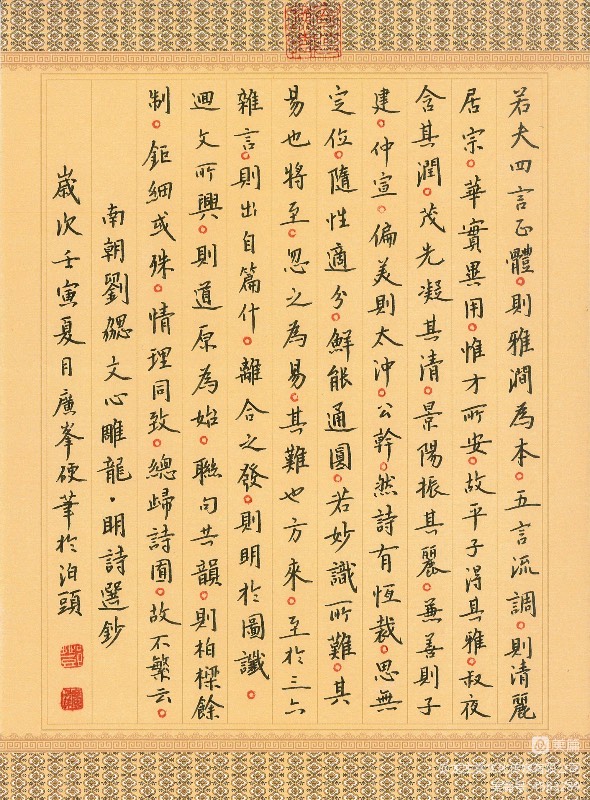 若夫四言正體。則雅潤為本。五言流調。則清麗
居宗。華實異用。惟才所安。故平子得其雅。叔夜
含其潤。茂先凝其清。景陽振其麗。兼善則子
建。仲宣。偏美則太沖。公幹。然詩有恆裁。思無
定位。隨性適分。鮮能通圓。若妙識所難。其
易也將至。忽之為易。其難也方來。至於三六
雜言。則出自篇什。離合之發。則明於圖讖。
迴文所興。則道原為始。聯句共韻。則柏樑餘
制。鉅細或殊。情理同致。總歸詩囿。故不繁云。
南朝劉勰文心雕龍·明詩選鈔
歲次壬寅夏月廣峯硬筆於泊頭
美篇